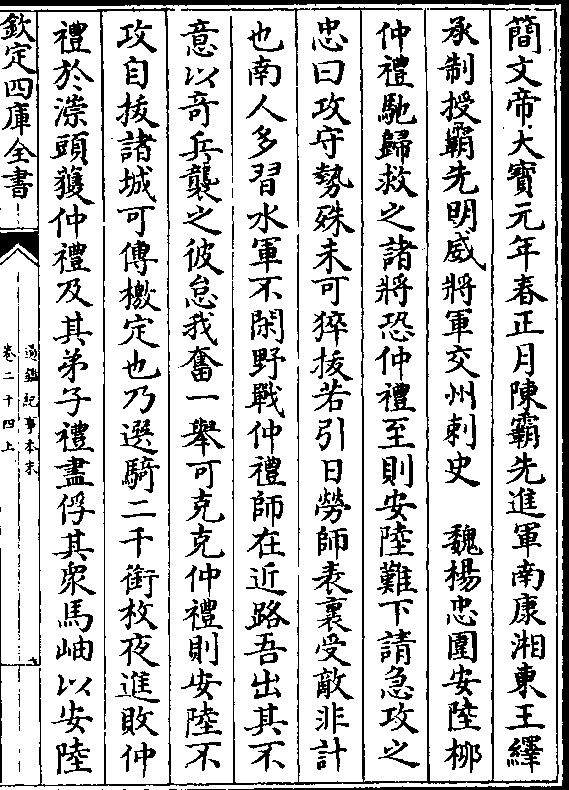 簡文帝大寶元年春正月陳霸先進軍南康湘東王繹
承制授霸先明威將軍交州刺史　魏楊忠圍安陸栁
仲禮馳歸救之諸將恐仲禮至則安陸難下請急攻之
忠曰攻守勢殊未可猝拔若引日勞師表裏受敵非計
也南人多習水軍不閑野戰仲禮師在近路吾出其不
意以奇兵襲之彼怠我奮一舉可克克仲禮則安陸不
攻自拔諸城可傳檄定也乃選騎二千銜枚夜進敗仲
禮於漴頭獲仲禮及其弟子禮盡俘其衆馬岫以安陸
欽定四庫全書
通鑑紀事本末
卷二十四上